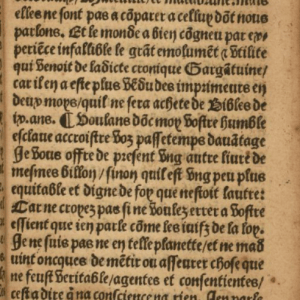 elles ne sont pas a cõparer a celluy dõt nous
parlons. Et le monde a bien cõgneu par ex-
perience infallible le grãt emolumẽt & vtilite
qui venoit de ladicte cronique Gargãtuine/
car il en a este plus vẽdu des imprimeurs en
deux moys/quil ne sera achete de Bibles de
ix.ans. ¶ Voulans dõc moy vostre humble
esclaue accroistre voz passetemps dauãtage
Je vous offre de present vng autre liure de
mesmes billon/sinon quil est vng peu plus
equitable et digne de foy que nestoit lautre:
Car ne croyez pas si ne voulez errer a vostre
essient que ien parle cõme les iuifz de la loy.
Je ne suis pas ne en telle planette/et ne mad
uint oncques de mẽtir ou asseurer chose que
ne feust veritable/agentes et consentientes/
cest a dire q̃ na conscience na rien. Jen parle